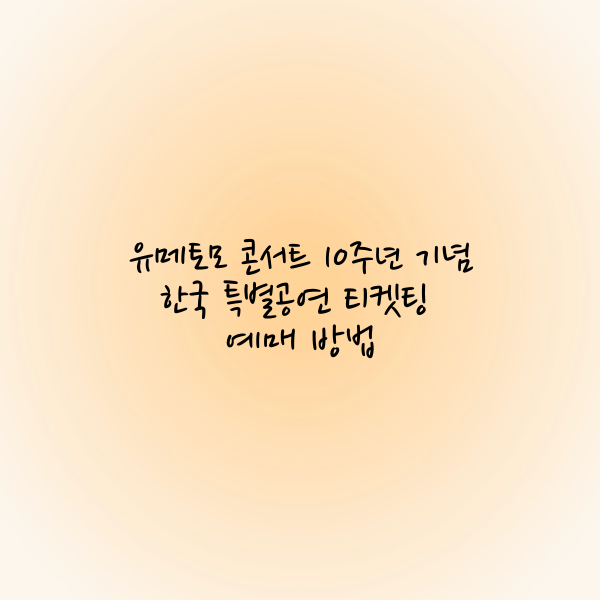 유메토모 콘서트 10주년 기념
한국 특별공연 티켓팅
예매 방법